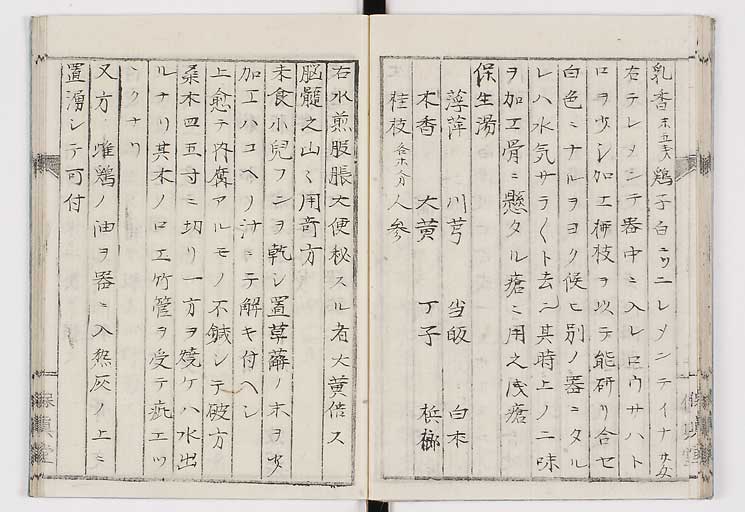 乳香 末五戔 鶏子白ニツニレメンテイナ
右テレメンテ器中ニ入レロウサハト
ロヲ少シ加エ柳枝ヲ以テ能研リ合セ
白色ニナルヲヨク候ヒ別ノ器ニタル
レハ水気サラ〱ト去ル其時上ノ二味
ヲ加エ骨ニ懸タル瘡ニ用之浅瘡
保生湯
萍 川芎 当皈 白朮
木香 大黄 丁子 梹榔
桂枝 各等分 人参
右水煎股脹大便秘スル者大黄倍ス
脳髄之山ニ用奇方
未食小兒フンヲ乾シ置草薢ノ末ヲ少
加エハコヘノ汁ニテ解キ付ヘシ
上愈テ内腐アルモノ不鍼シテ破方
桑木四五寸ニ切リ一方ヲ焼ケハ水出
ルナリ其木ノロエ竹管ヲ受テ疵エツ
ヽクナリ
又方 雌鶏ノ油ヲ器ニ入熱灰ノ上ニ
置湧シテ可付
保真堂